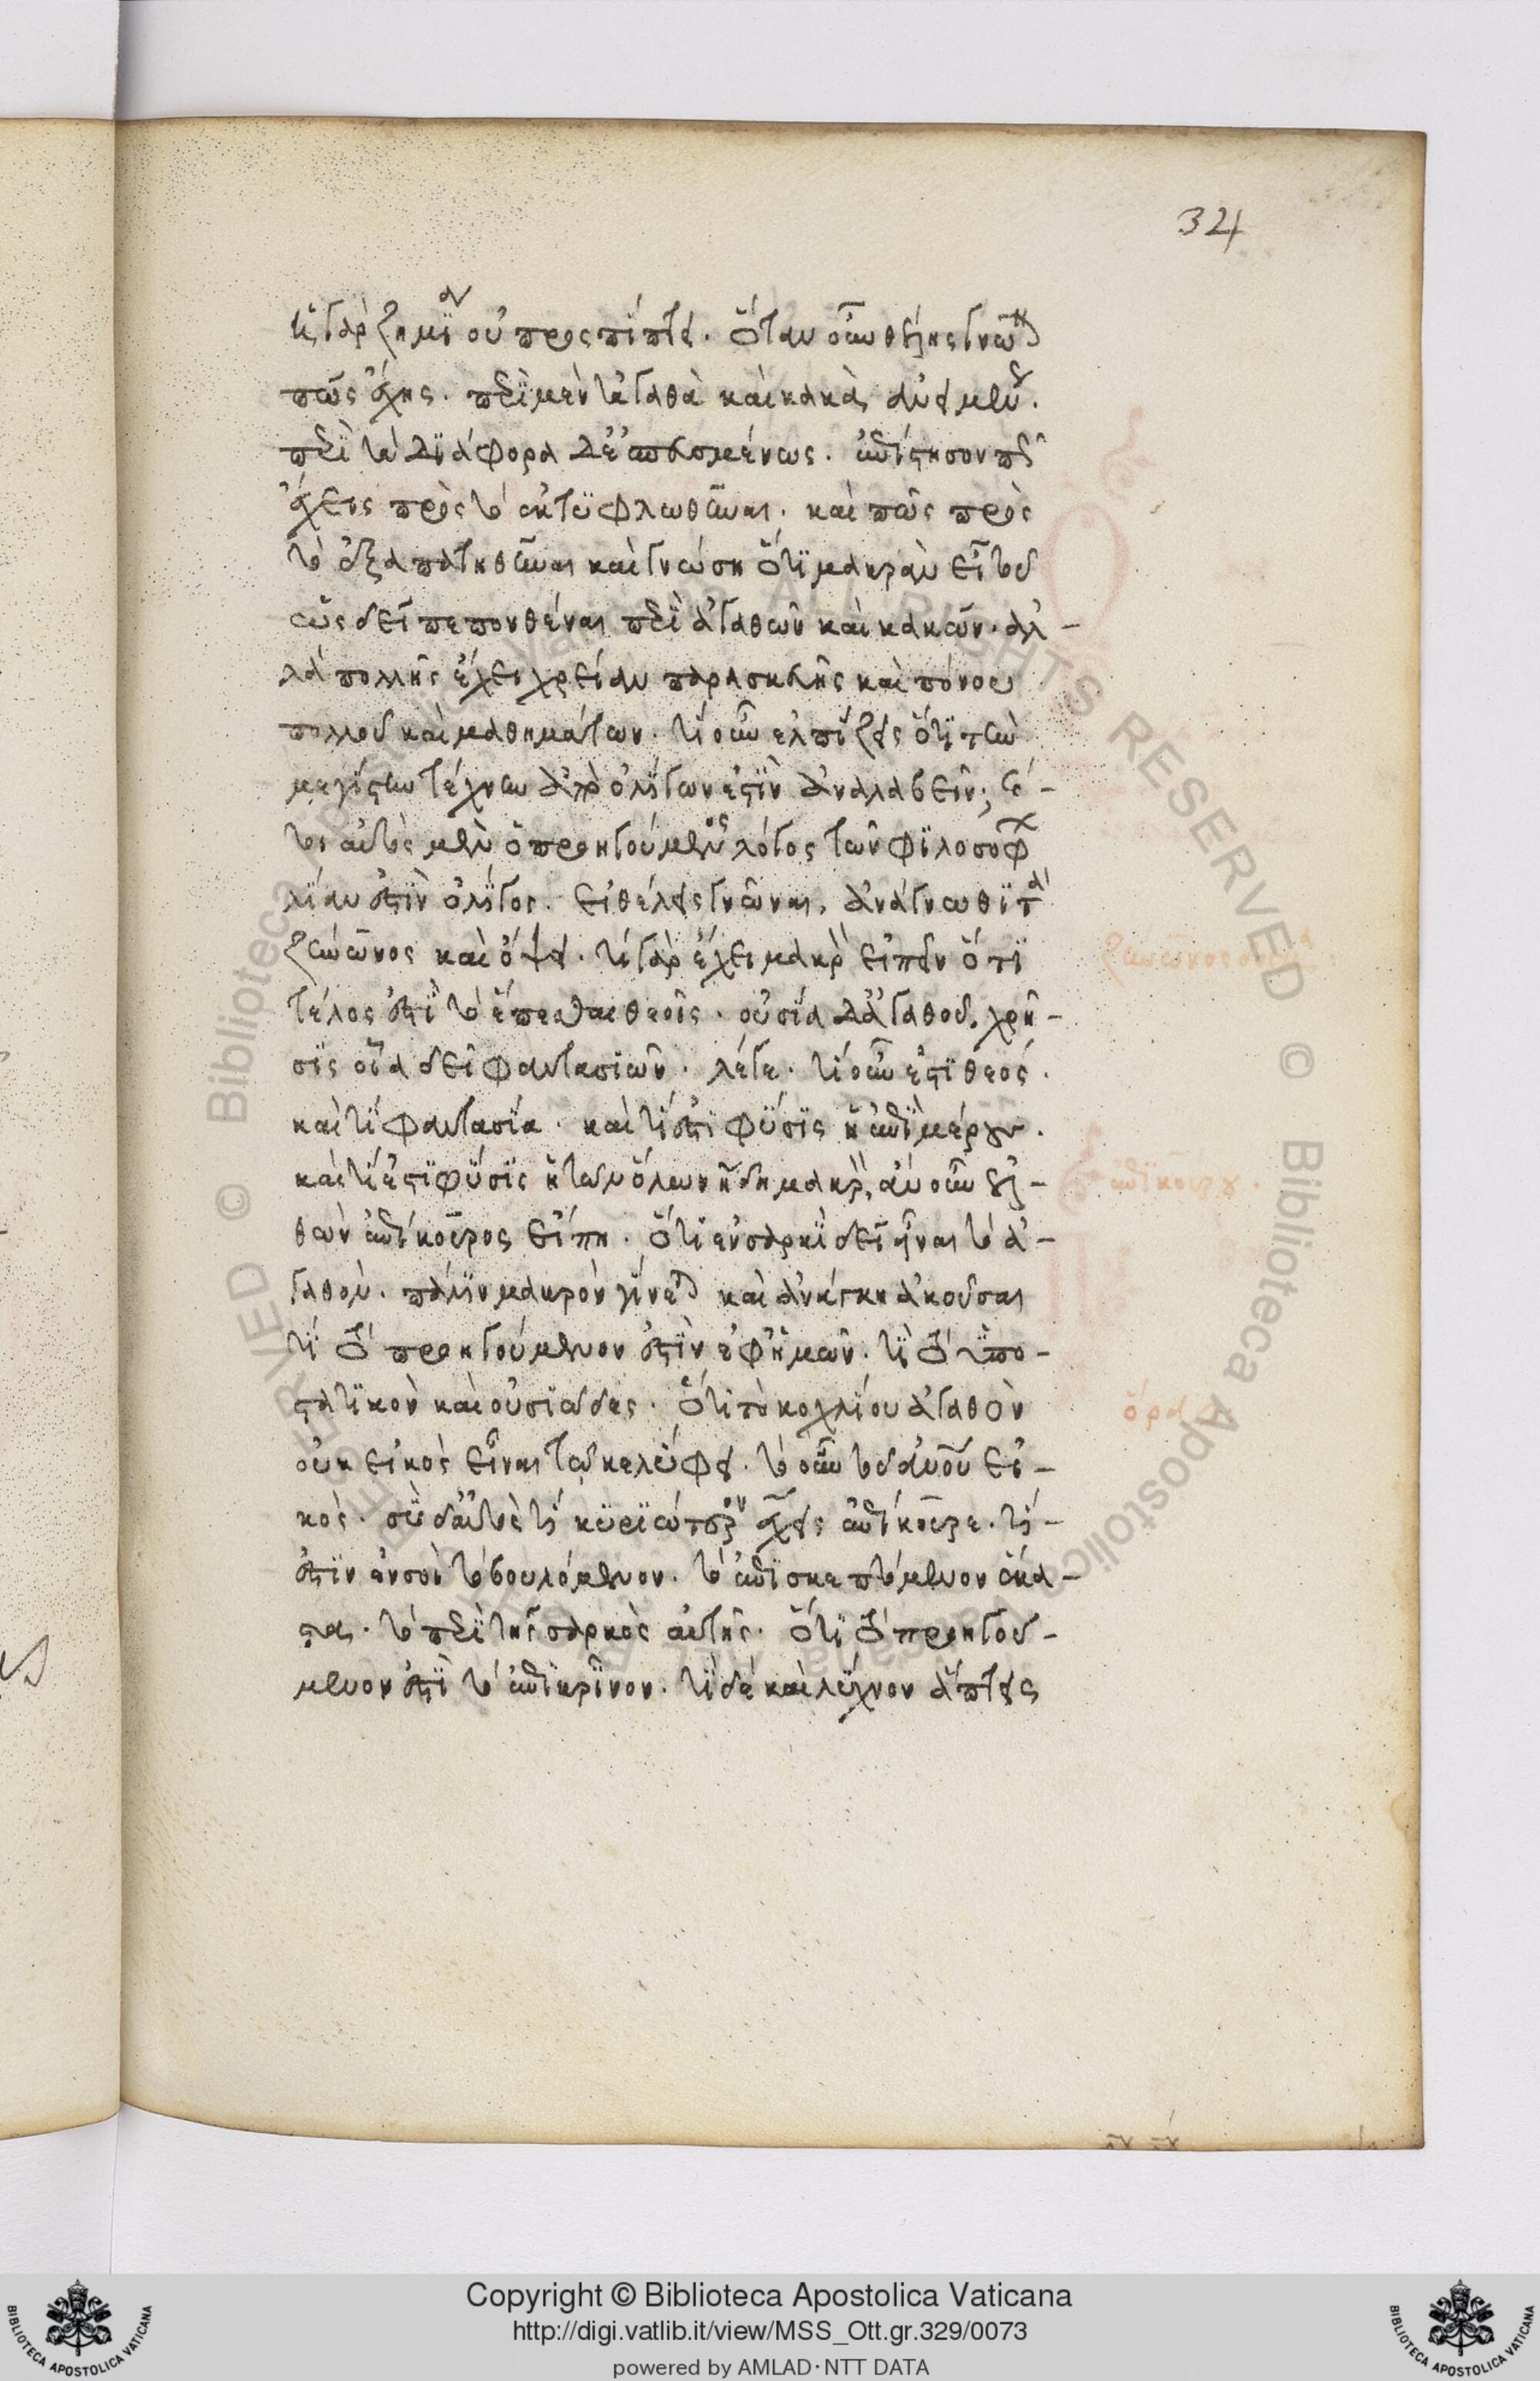 324
καὶ γὰρ ζημίαν οὐ προςπίπτει. ὅταν οὖν θέλης γνῶναι
πῶς ἔχης. περὶ μὲν τἀγαθὰ καὶ κακὰ,
περὶ τὰ διάφορα δὲ ἐσπευσμένως. ἐπίστησον πῶς
ἔχεις πρὸς τὸ ἐκτυφλωθῆναι. καὶ πῶς πρὸς
τὸ ἐξαπατηθῆναι καὶ γνώση ὅτι μακρὰν εἶ τοῦ
ὡς δεῖ πεπονθέναι περὶ ἀγαθῶν καὶ κακῶν. ἀλ-
λὰ πολλῆς ἔχει χρείαν παρασκευῆς καὶ πόνου
πολλοῦ καὶ μαθημάτων. τί οὖν ἐλπίζεις ὅτι τὴν
μεγίστην τέχνην ἀπὸ ὀλίγων ἐστὶν ἀναλαβεῖν;
τοι αὐτὸς μὲν ὁ προηγούμενος λόγος τῶν φιλοσόφων
λίαν ἐστὶν ὀλίγος. εἰ θέλεις γνῶναι, ἀνάγνωθι τὰ
ζήνωνος καὶ ὄψει. τί γὰρ ἔχει μακρὸν εἰπεῖν ὅτι
τέλος ἐστὶ τὸ ἕπεσθαι θεοῖς. οὐσία δ' ἀγαθοῦ, χρῆ-
σις οἵα δεῖ φαντασιῶν. λέγε. τί οὖν ἐστι θεός.
καὶ τί φαντασία. καὶ τί ἐστι φύσις ἡ ἐπὶ μέρους.
καὶ τί ἐστι φύσις ἡ τῶν ὅλων ἤδη μακρὸν, ἂν οὖν ἐλ-
θὼν ἐπίκουρος εἴπη. ὅτι ἐν σαρκὶ δεῖ εἶναι τὸ ἀ-
γαθὸν. πάλιν μακρὸν γίνεται καὶ ἀνάγκη ἀκοῦσαι
τί τὸ προηγούμενον ἐστὶν ἐφ' ἡμῶν. τί τὸ ὑπο-
στατικὸν καὶ οὐσιῶδες. ὅτι τὸ κοχλίου ἀγαθὸν
οὐκ εἰκὸς εἶναι τῷ κελύφει. τὸ οὖν τοῦ ἀνθρώπου εἰ-
κός. σὺ δ' αὐτὸς τί κυριώτερον ἔχεις ἐπίκουρε. τί
ἐστιν ἐν σοὶ τὸ βουλόμενον. τὸ ἐπισκεπτόμενον ἕκα-
στα. τὸ περὶ τῆς σαρκὸς αὐτῆς. ὅτι τὸ προηγού-
μενον ἐστὶ τὸ ἐπικρῖνον. τί δὲ καὶ λύχνον ἅπτεις
ζήνωνος
ἐπίκουρου.
ὅρα
Copyright © Biblioteca Apostolica Vaticana
http://digi.vatlib.it/view/MSS_Ott.gr.329/0073
powered by AMLAD·NTT DATA